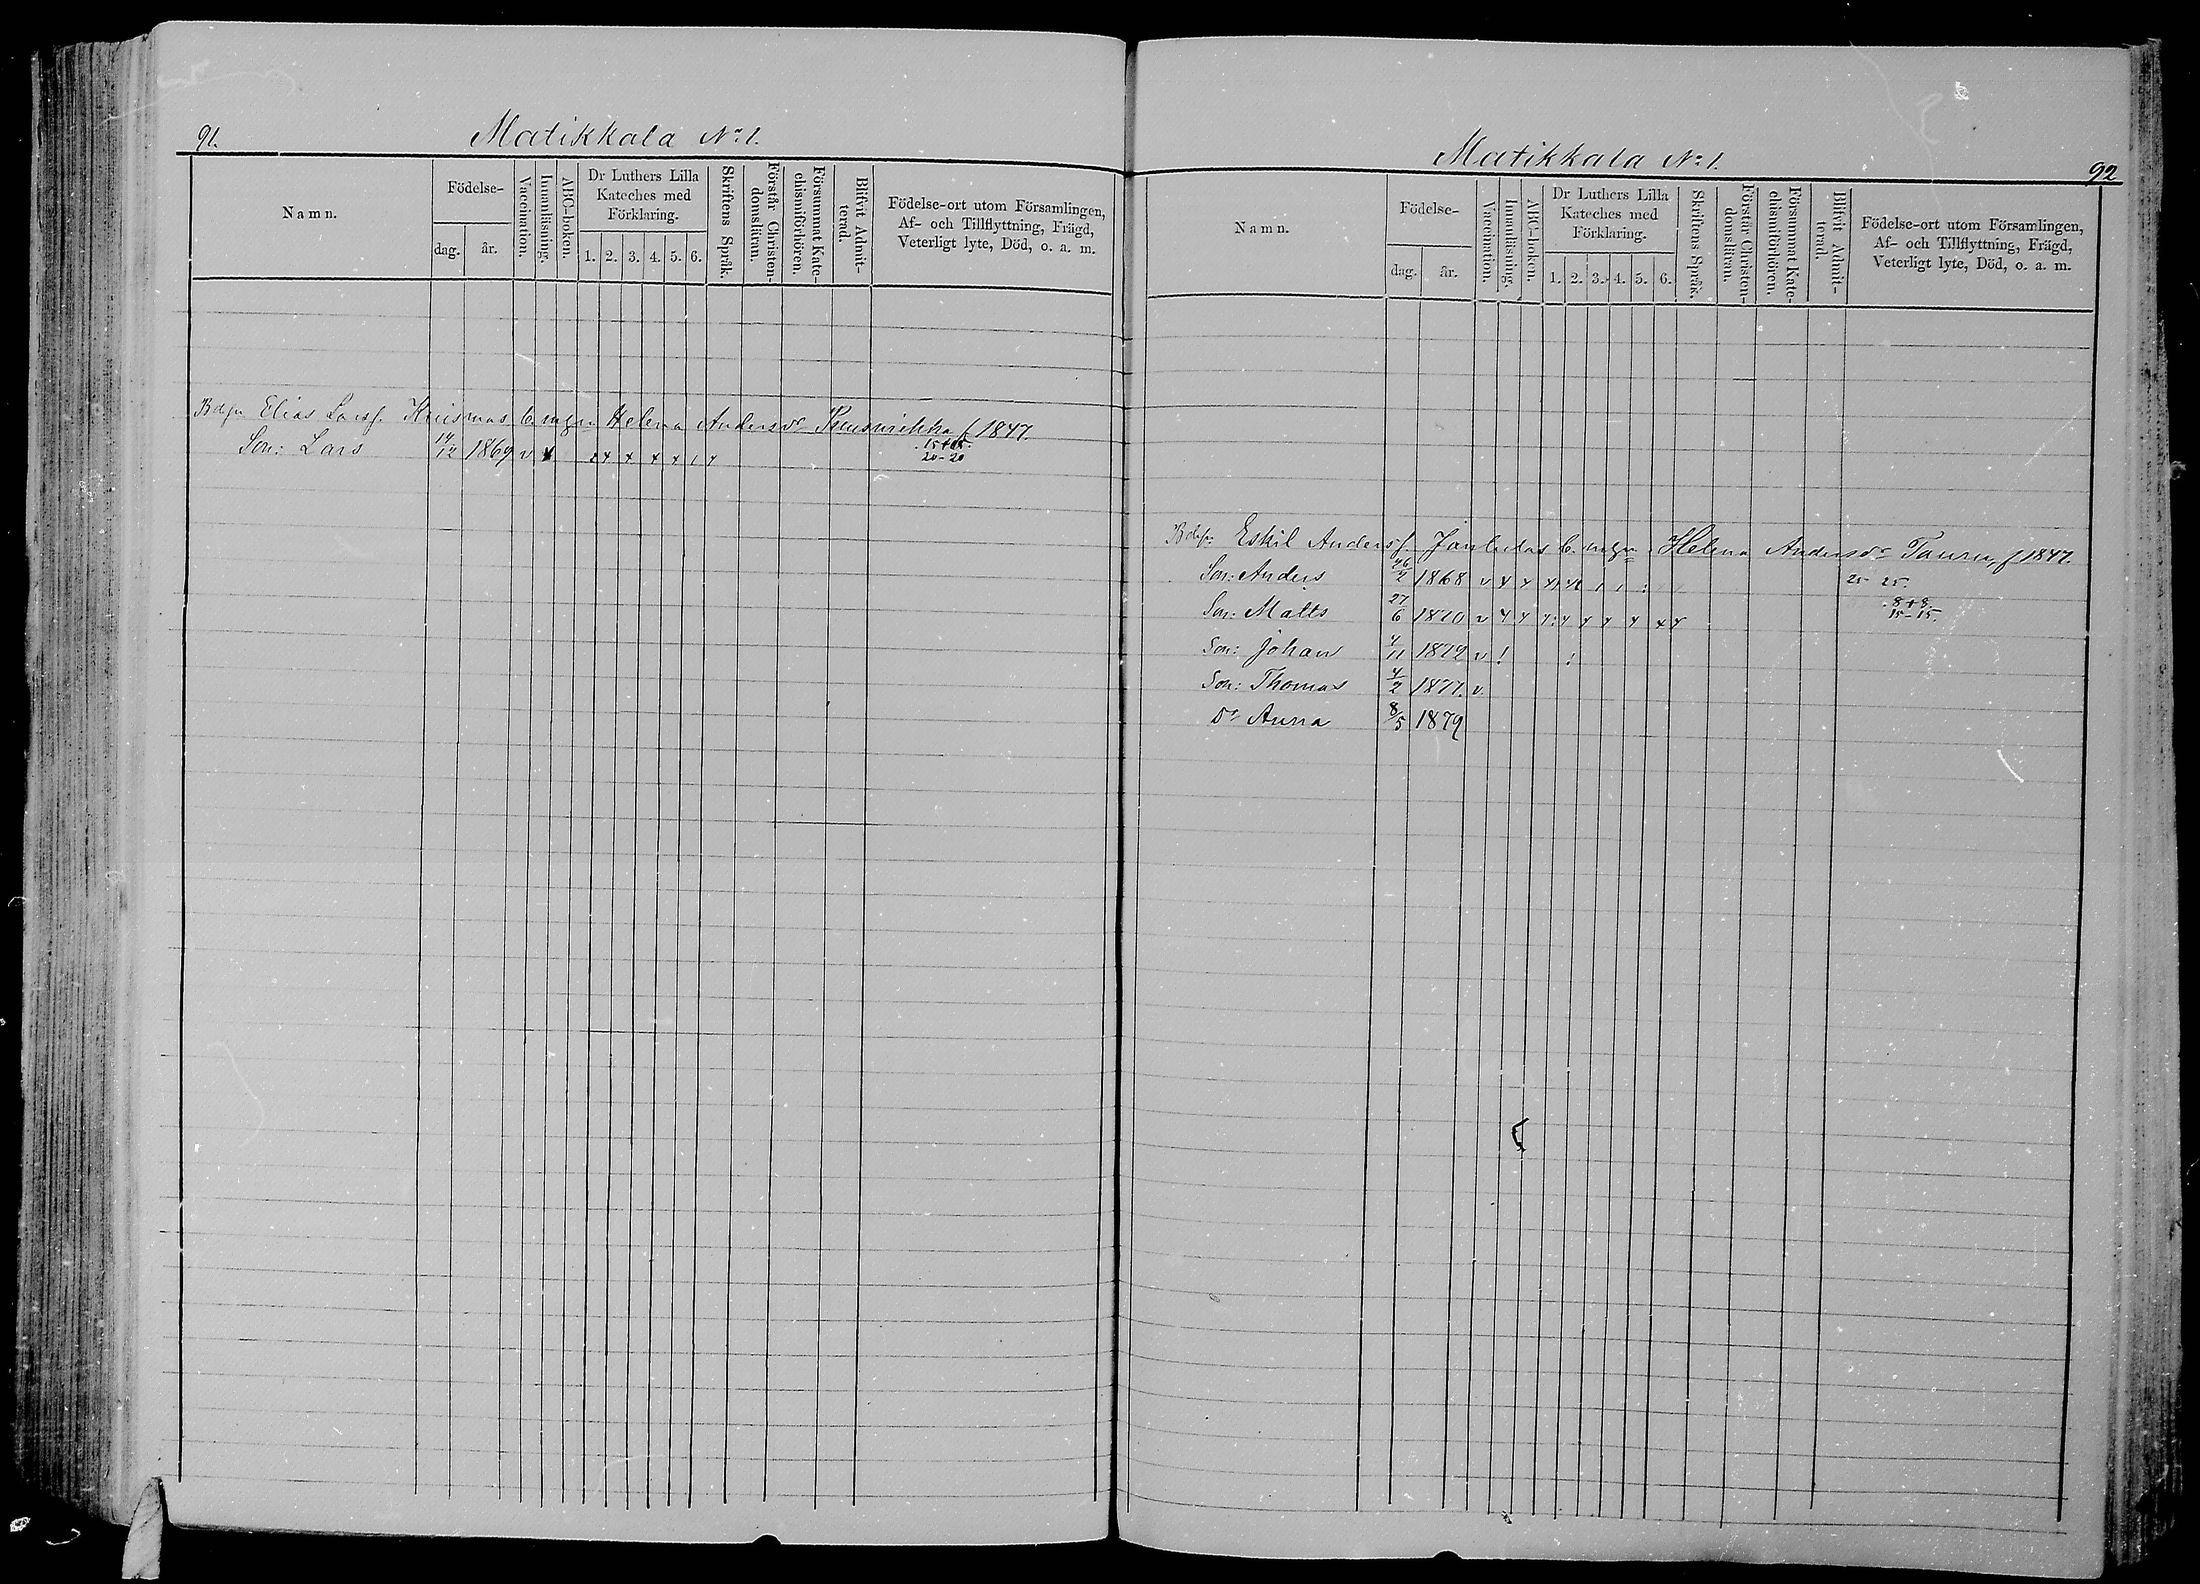 91.
Matikkala No 1.
Namn.
Födelse-
dag.
år.
Vaccination.
Innanläsning.
ABC-boken.
Dr Luthers Lilla
Kateches med
Förklaring.
1. 2. 3. 4. 5. 6.
Skriftens Språk.
Förstår Christen-
domsläran.
Försummat Kate-
chismiförhören.
Blifvit Admit-
terad.
Födelse-ort utom Församlingen,
Af- och Tillflyttning, Frägd,
Veterligt lyte, Död, o. a. m.
Elias Larsf. Helena Andersdr f 1847.
Son: Lars 14/12 1869 v x x x x x x 1 x 15+15. 20-20
Matikkala No 1.
92
Namn.
Födelse-
dag.
år.
Vaccination.
Innanläsning.
ABC-boken.
Dr Luthers Lilla
Kateches med
Förklaring.
1. 2. 3. 4. 5. 6.
Skriftens Språk.
Förstår Christen-
domsläran.
Försummat Kate-
chismiförhören.
Blifvit Admit-
terad.
Födelse-ort utom Församlingen,
Af- och Tillflyttning, Frägd,
Veterligt lyte, Död, o. a. m.
Eskil Andersf. Helena Andersdr f 1847.
Son: Anders 1868 v 25 25.
Son: Matts 27/6 1870 v 8+8. 15-15.
Son: Johan 4/11 1872 v ! !
Son: Thomas 4/2 1877. v.
Dr Anna 8/5 1879